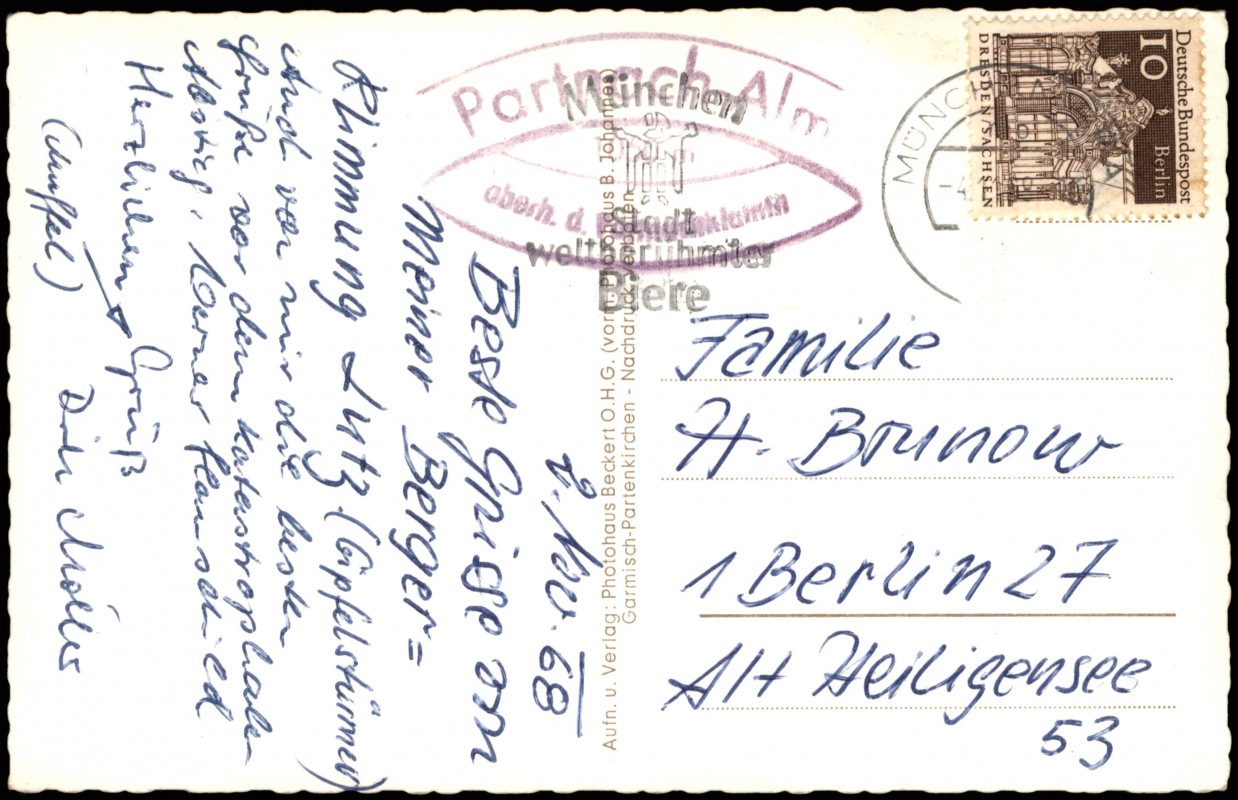 2. Nov. 68
Beste Grüsse von
Meiner Berger=
Klimmung Lutz. (Gipfelstürmer)
Auch von mir die besten
Grüße vor dem katastrophalen
Abstieg,
Herzlichen Gruß
Partnach Alm
oberh. d. Partnachklamm
München
Stadt
weltberühmter
Biere
Aufn. u. Verlag: Photohaus Beckert O.H.G. (vorm. Photohaus B. Johannes)
Garmisch-Partenkirchen - Nachdruck verboten
Deutsche Bundespost
Berlin
10
DRESDEN/SACHSEN
MÜNCH
Familie
H. Brunow
1 Berlin 27
Alt Heiligensee
53